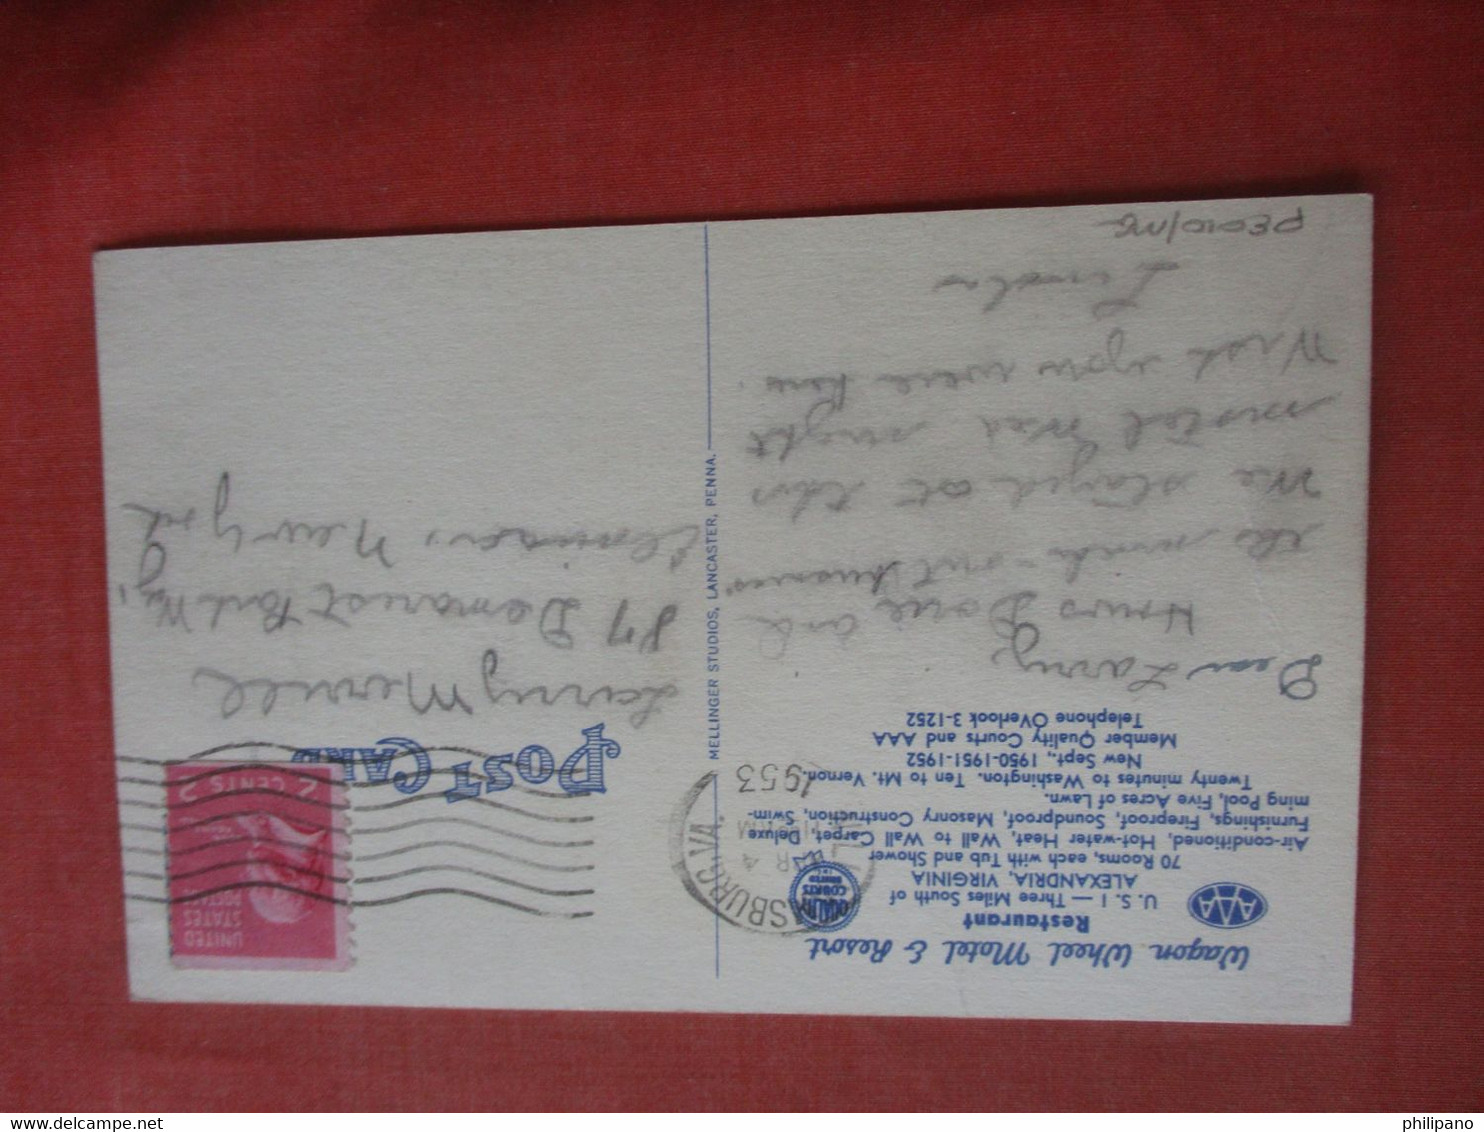 Wagon Wheel Motel & Resort
Restaurant
AAA
U. S. 1 — Three Miles South of
ALEXANDRIA, VIRGINIA
70 Rooms, each with Tub and Shower
Air-conditioned, Hot-water Heat, Wall to Wall Carpet, Deluxe
Furnishings, Fireproof, Soundproof, Masonry Construction, Swim-
ming Pool, Five Acres of Lawn.
Twenty minutes to Washington. Ten to Mt. Vernon.
New Sept., 1950-1951-1952
Member Quality Courts and AAA
Telephone OVerlook 3-1252
Dear Larry,
We stayed at this
motel last night
Wish you were here.
Linda
MELLINGER STUDIOS, LANCASTER, PENNA.
SBURG, VA.
1953
POST CARD
UNITED
STATES
POSTAGE
2 CENTS 2
Larry Merrill
Demarest
New York
philipano